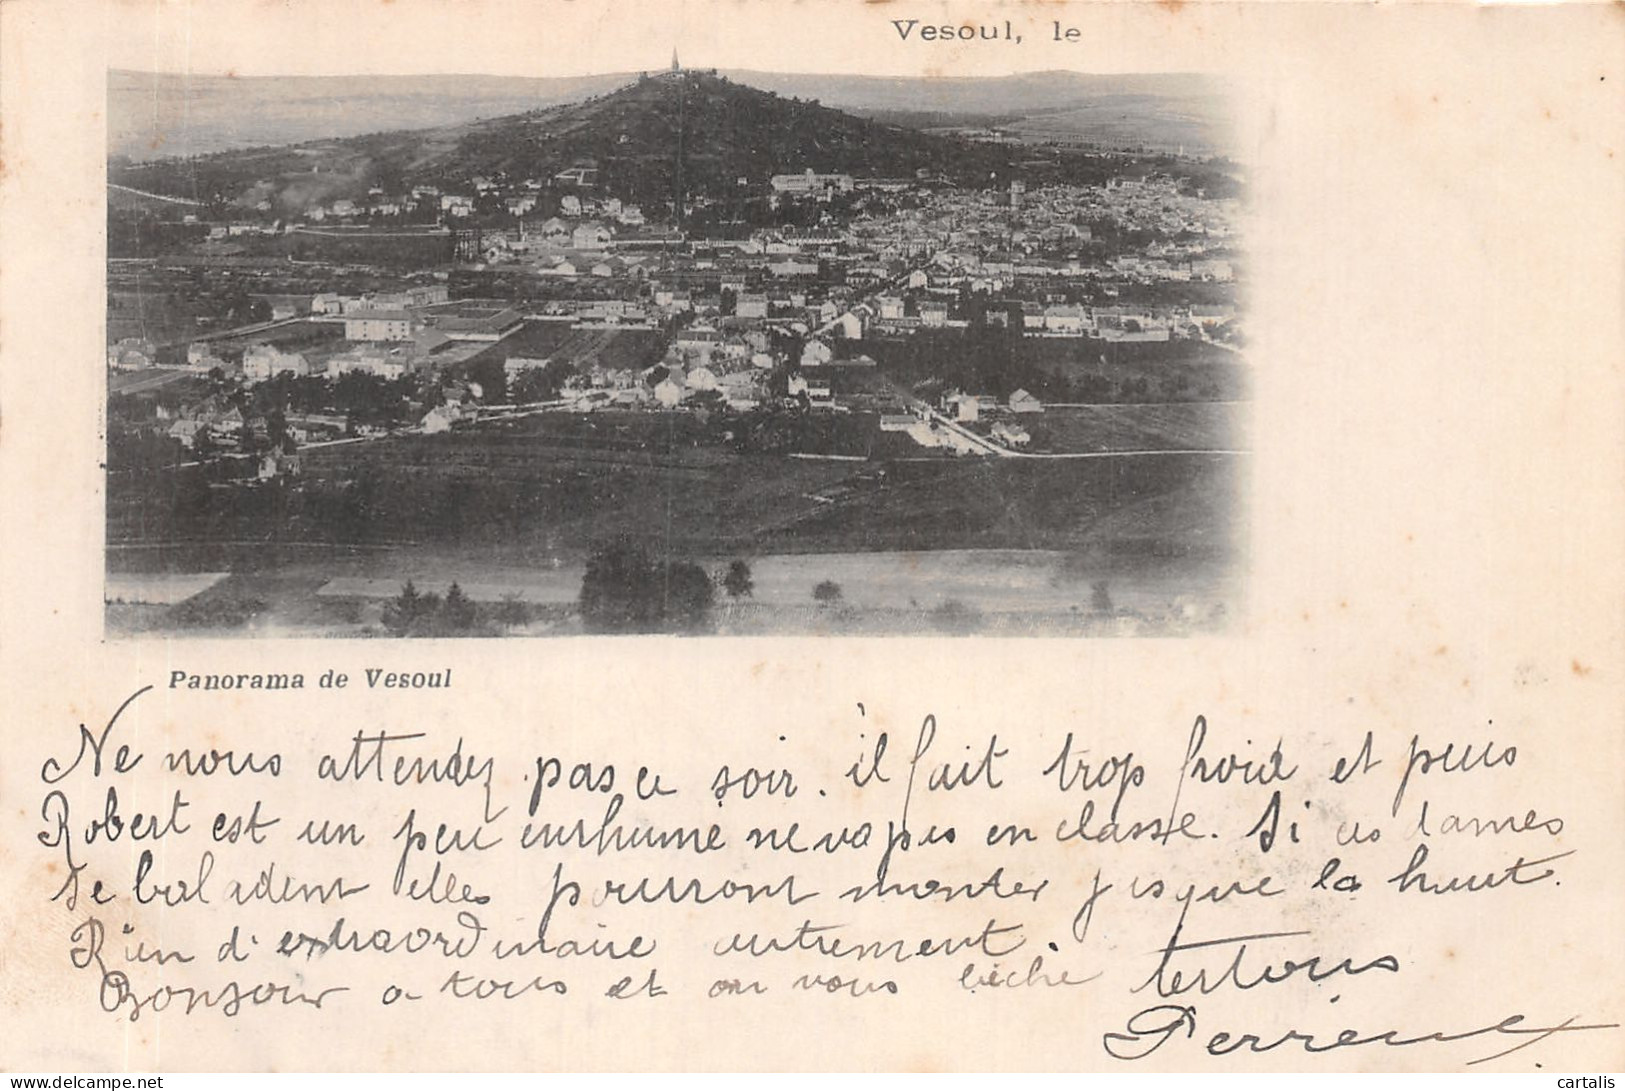 Vesoul, le
Panorama de Vesoul
Ne nous attendez pas ce soir. il fait trop froid et puis
Robert est un peu enrhumé ne va pas en classe. Si ces dames
se baladent elles pourront monter jusque la haut.
Rien d'extraordinaire autrement.
Bonjour a tous et on vous lèche tertous
delcampe.net
cartalis